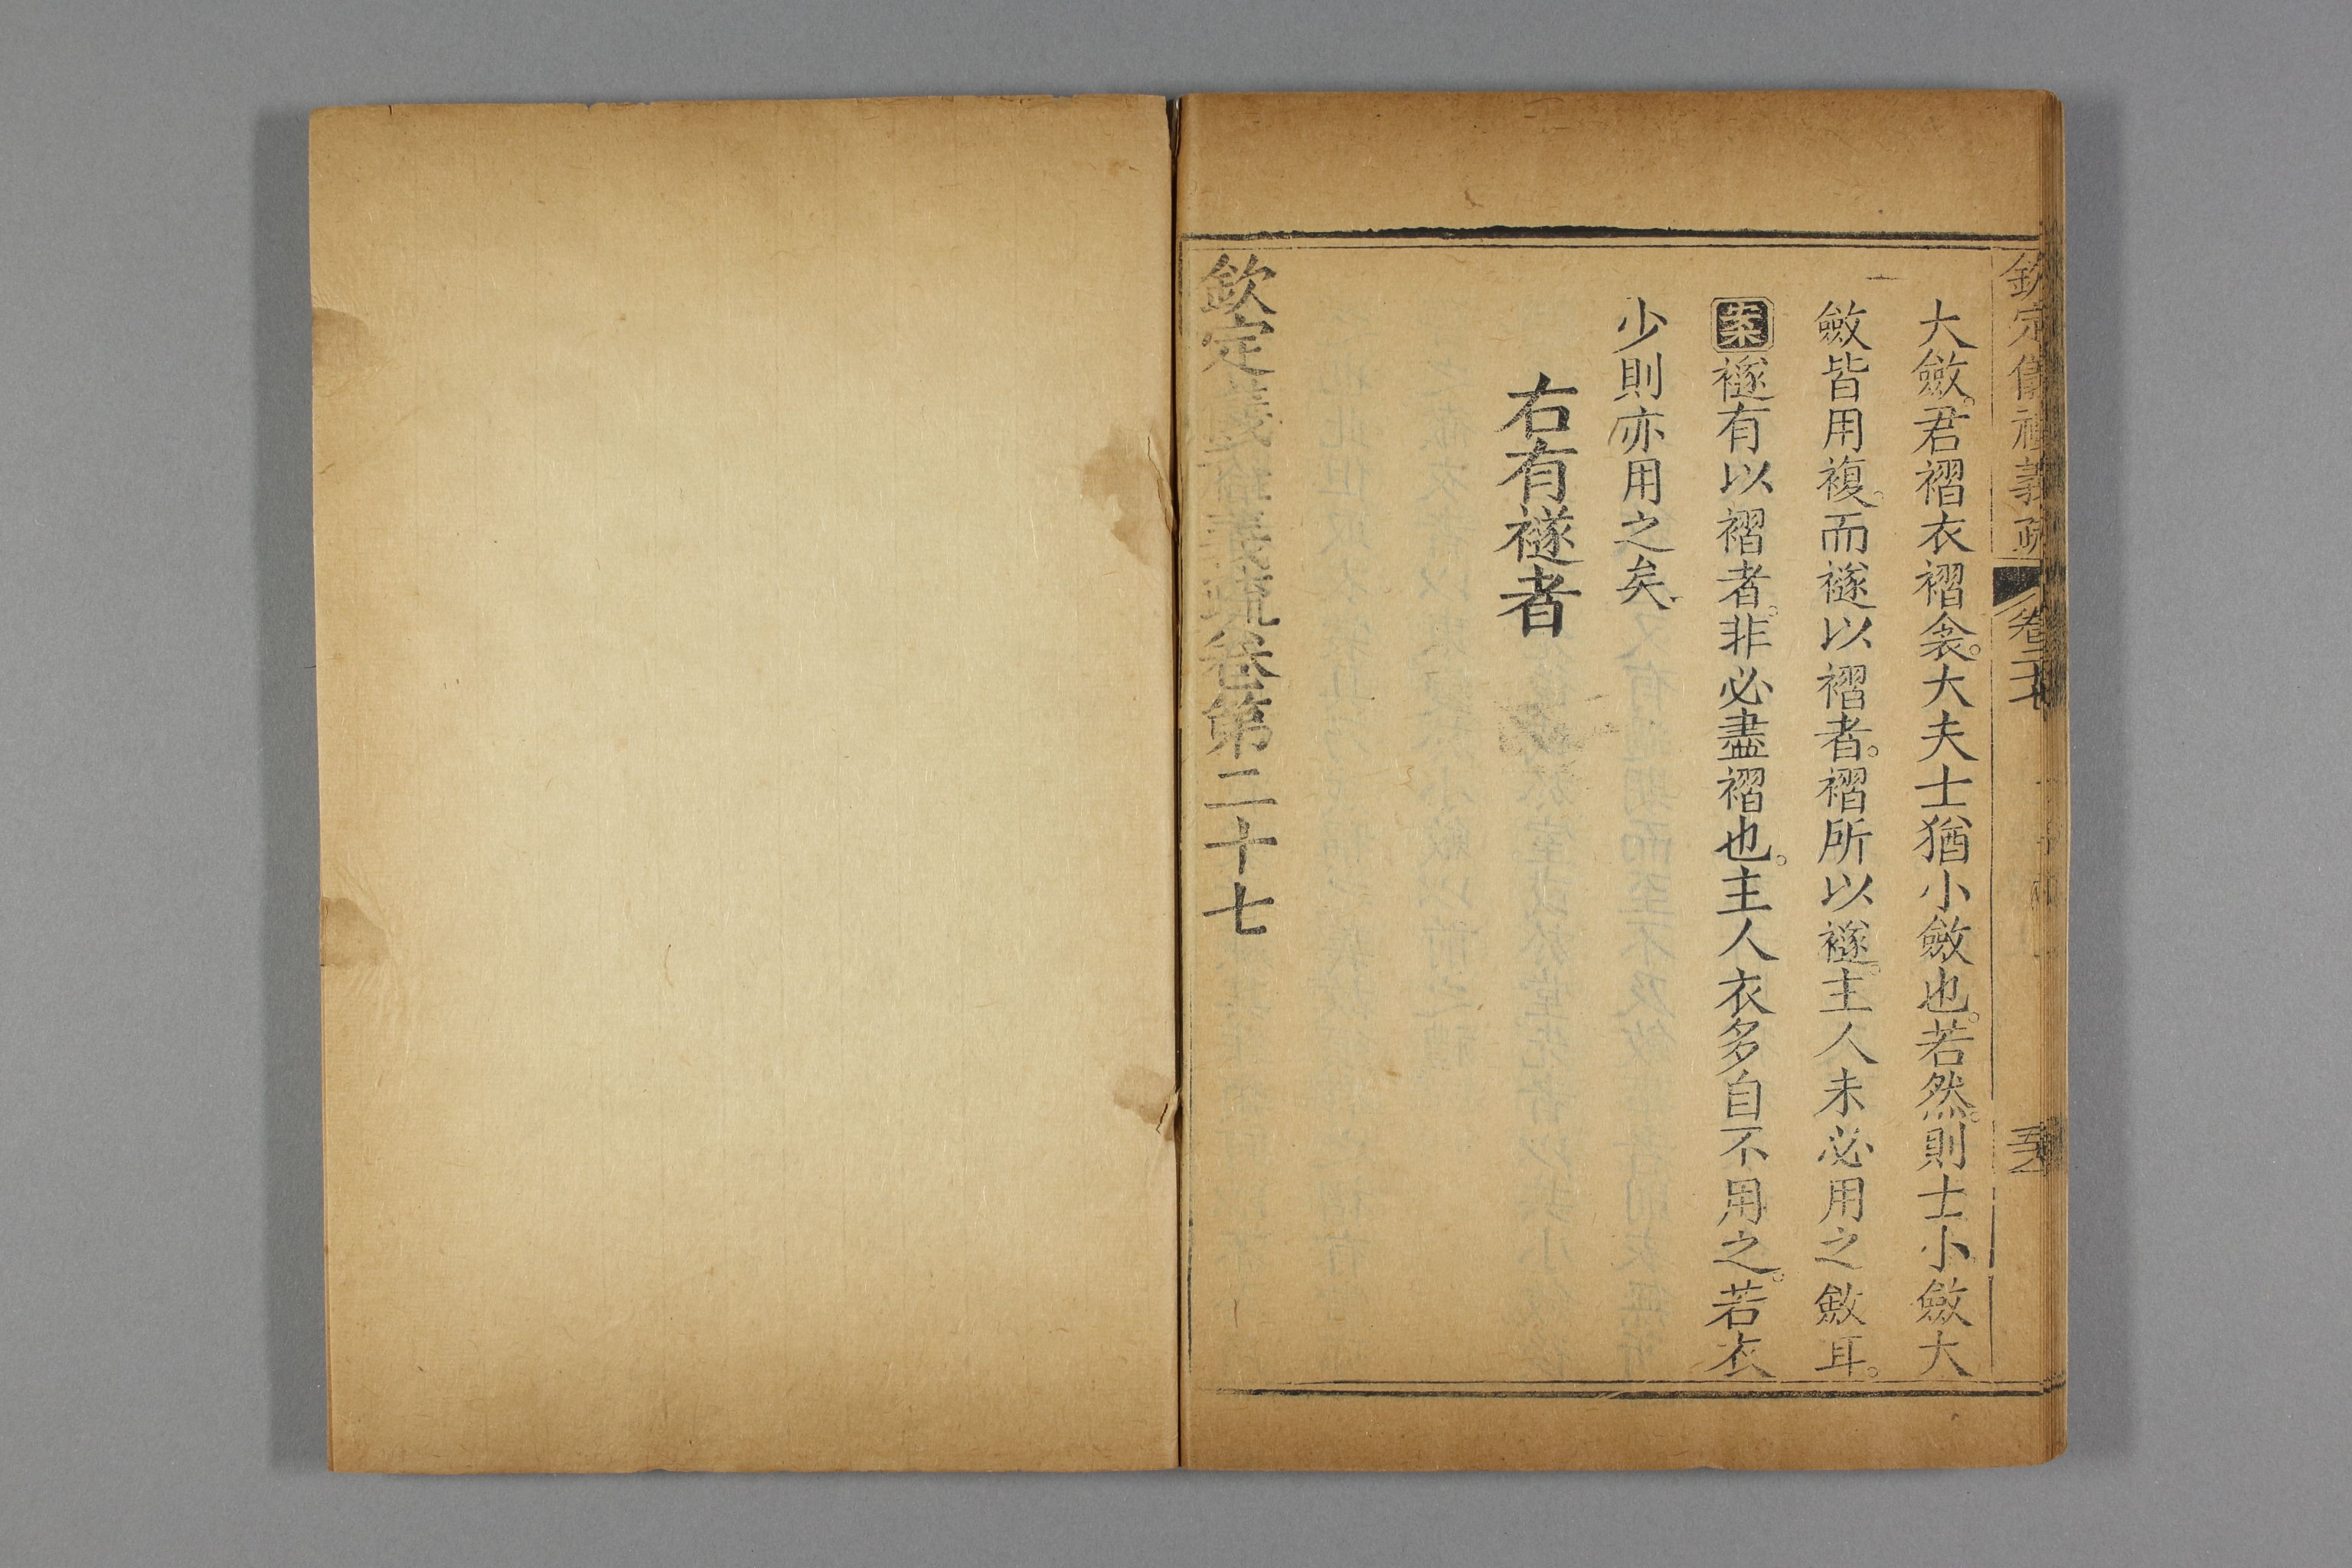 欽定儀禮義疏 卷二十七
大斂。君褶衣褶衾。大夫士猶小斂也。若然。則士小斂大
斂皆用複。而襚以褶者。褶所以襚。主人未必用之斂耳。
案襚有以褶者。非必盡褶也。主人衣多自不用之。若衣
少則亦用之矣。
右有襚者
欽定儀禮義疏卷第二十七